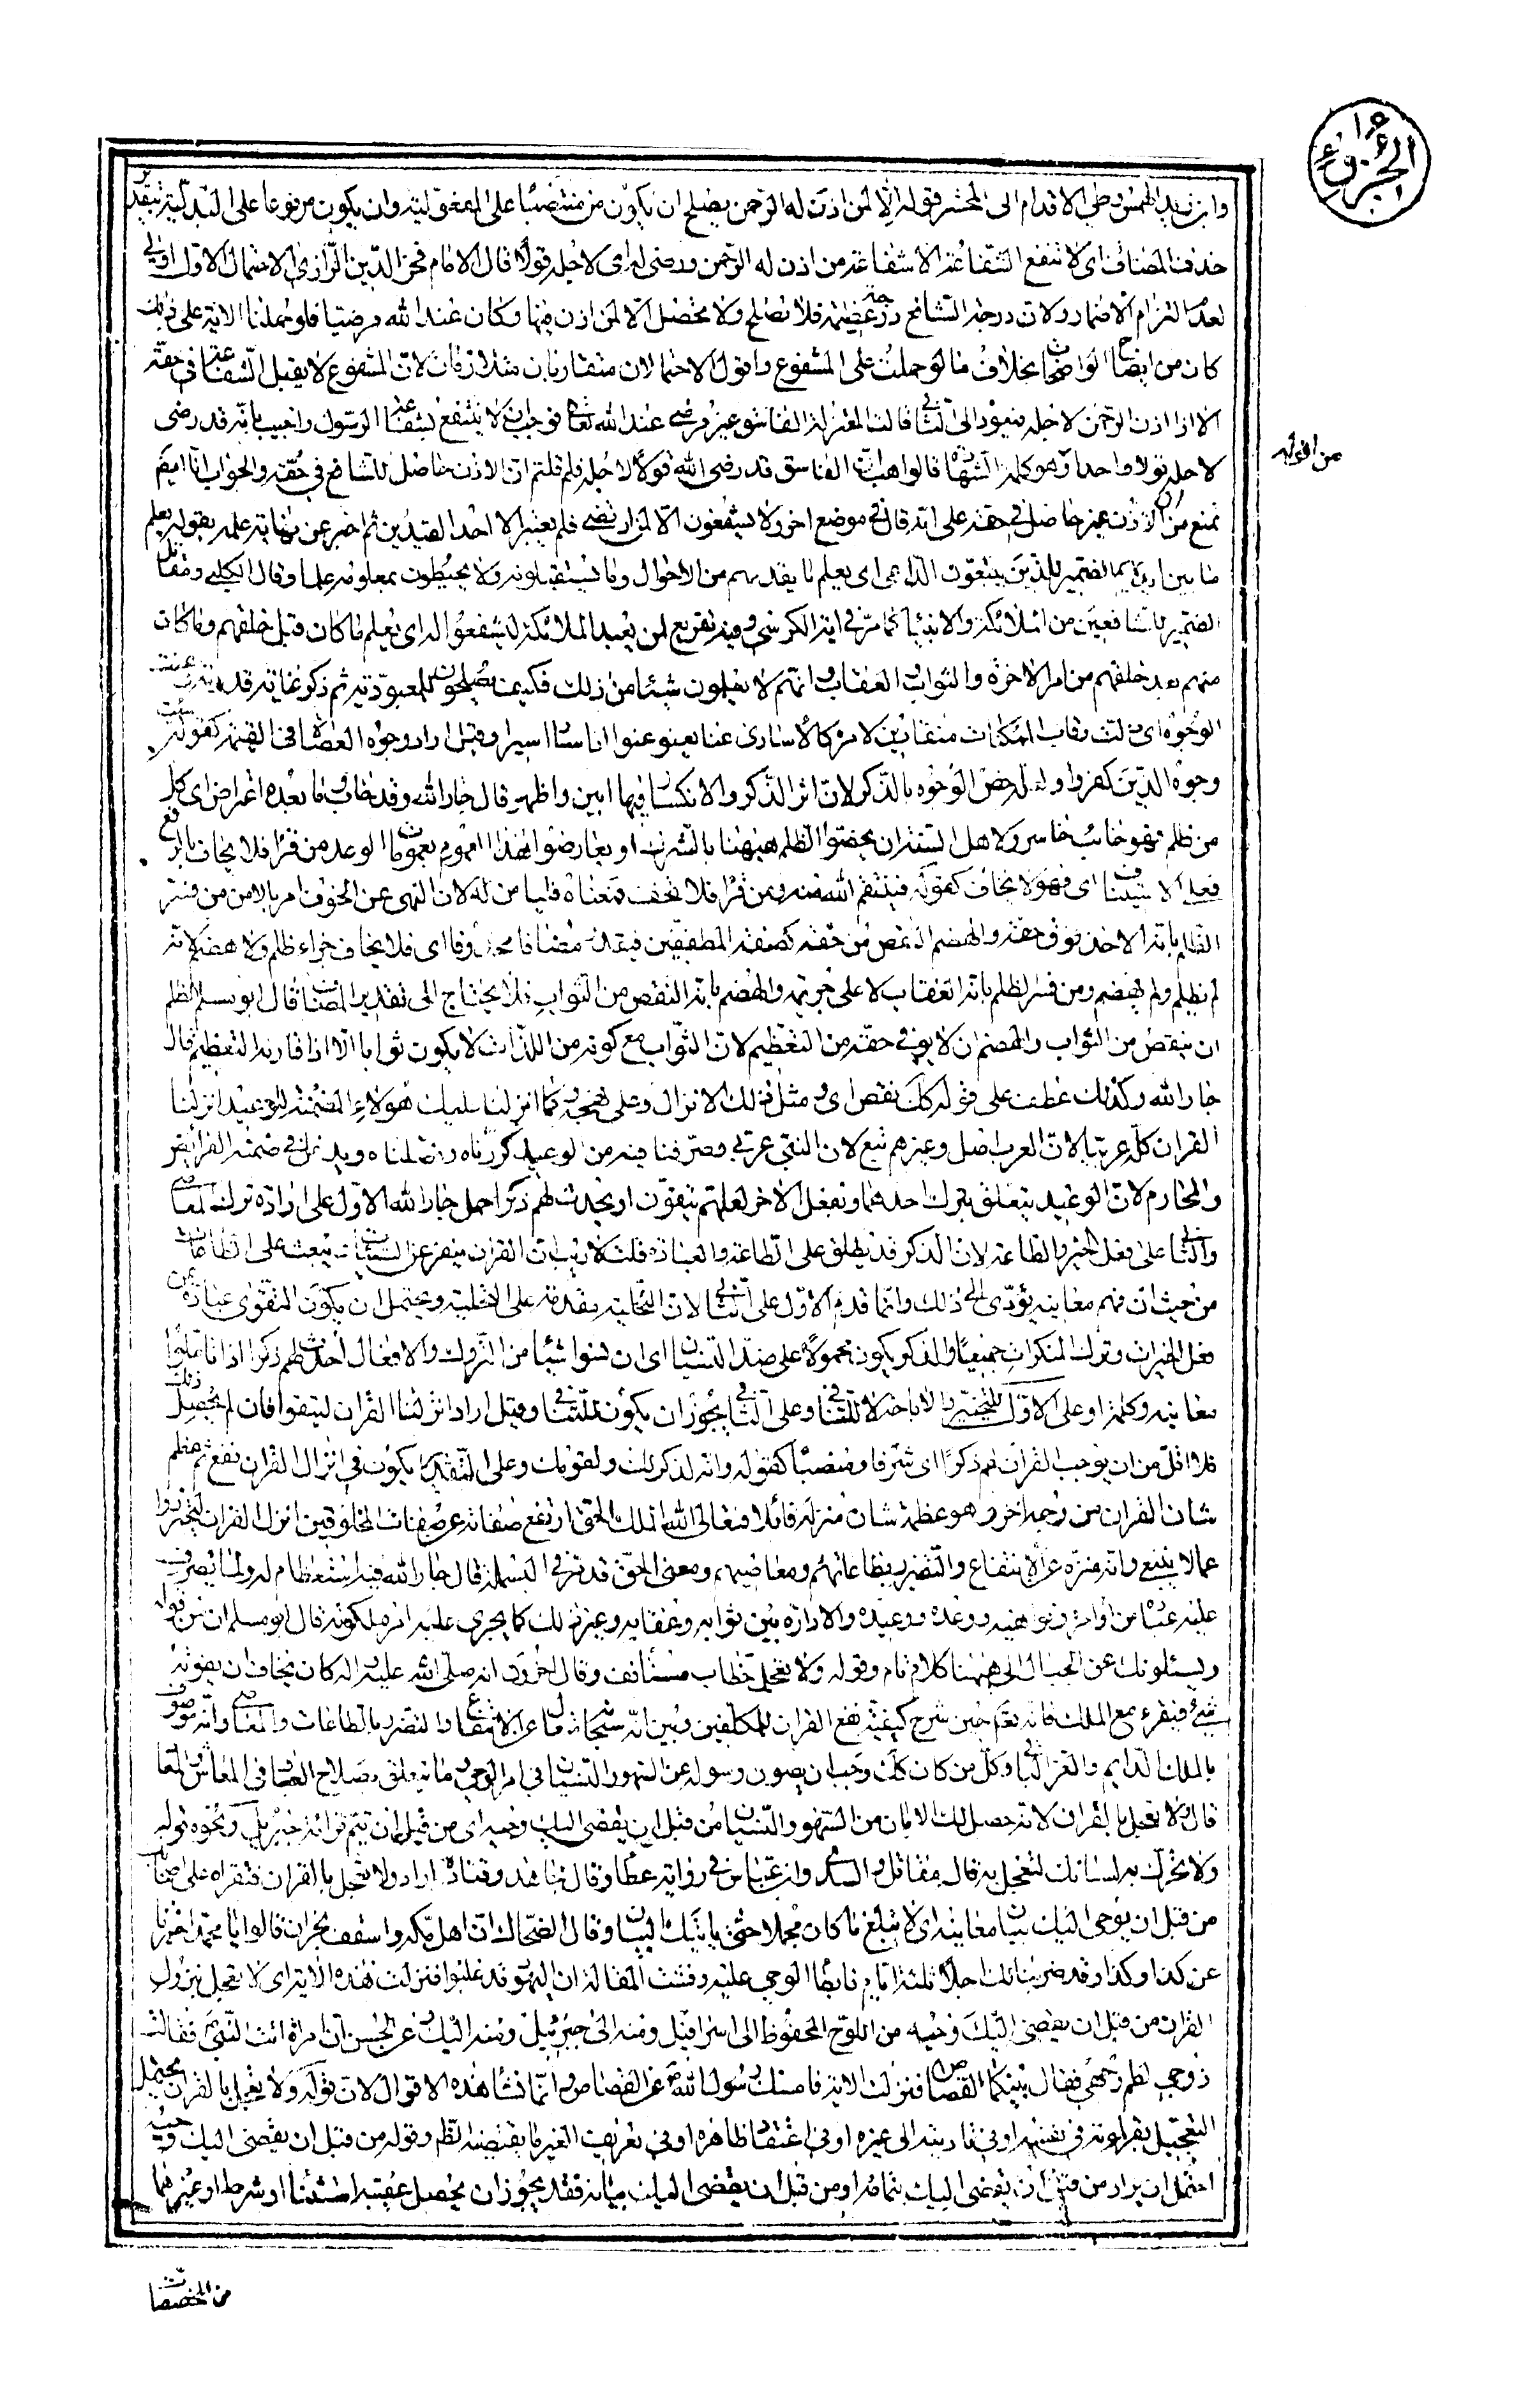 الجزء ١٥
وان يريد الهمس وطي الاقدام الى المحشر قوله الا لمن اذن له الرحمن يصلح ان يكون من منتصبا على المفعولية وان يكون مرفوعا على البدلية بتقدير
حذف المضاف اي لا تنفع الشفاعة الا شفاعة من اذن له الرحمن ورضي له اي لاجله قولا قال الامام فخر الدين الرازي الاحتمال الاول اولى
لعدم التزام الاضمار ولان درجة الشافع درجة عظيمة فلا تصلح ولا تحصل الا لمن اذن فيها وكان عند الله مرضيا فلو حملنا الاية على ذلك
كان من ايضاح الواضحات بخلاف ما لو حملت على المشفوع واقول الاحتمالان متقاربان متلازمان لان المشفوع لا يقبل الشفاعة في حقه
الا اذا اذن الرحمن لاجله فيعود الى الثاني قالت المعتزلة الفاسق غير مرضي عند الله تعالى فوجب ان لا يشفع بشفاعة الرسول واجيب بانه قد رضي
من اقواله
لاجله قولا واحدا وهو كلمة الشهادة قالوا هب ان الفاسق قد رضي الله قولا لاجله فلم قلتم ان الاذن حاصل للشافع في حقه والجواب انا ايضا
نمنع من ان الاذن غير حاصل في حقه على انه قال في موضع اخر ولا يشفعون الا لمن ارتضى فلم يعتبر الا احد القيدين ثم اخبر عن نهاية علمه بقوله يعلم
ما بين ايديهم الضمير للذين يتبعون الداعي اي يعلم ما يقدمهم من الاحوال وما يستقبلونه ولا يحيطون بمعلومه علما وقال الكلبي ومقاتل
الضمير للشافعين من الملائكة والانبياء كما مر في اية الكرسي وفيه تقريع لمن يعبد الملائكة ليشفعوا له اي يعلم ما كان قبل خلقهم وما كان
منهم بعد خلقهم من امر الاخرة والثواب والعقاب وانهم لا يعلمون شيئا من ذلك فكيف يصلحون للمعبودية ثم ذكر غاية قدرته فقال وعنت
الوجوه اي ذلت رقاب الممكنات منقادين لامره كالاسارى عنا يعنو عنوا اذا صار اسيرا وقيل اراد وجوه العصاة في القيمة كقوله سيئت
وجوه الذين كفروا ولعله خص الوجوه بالذكر لان اثر الذل والانكسار فيها ابين واظهر قال جار الله وقد خاب وما بعده اعتراض اي كل
من ظلم فهو خائب خاسر ولاهل السنة ان يخصوا الظلم ههنا بالشرك او يعارضوا هذا العموم بعمومات الوعد من قرا فلا يخاف بالرفع
فعلى الاستيناف اي فهو لا يخاف كقوله فينتقم الله منه ومن قرا فلا يخف فمعناه فليامن لان النهي عن الخوف امر بالامن من فسر
الظلم بانه الاخذ فوق حقه والهضم النقص من حقه كصفة المطففين فيقدر مضافا محذوفا اي فلا يخاف جزاء ظلم ولا هضم لانه
لم يظلم ولم يهضم ومن فسر الظلم بانه العقاب لا على جريمة والهضم بانه النقص من الثواب فلا يحتاج الى تقدير المضاف قال ابو مسلم الظلم
ان ينقص من الثواب والهضم ان لا يوفى حقه من التعظيم لان الثواب مع كونه من اللذات لا يكون ثوابا الا اذا قارنه التعظيم قال
جار الله وكذلك عطف على قوله كذلك نقص اي ومثل ذلك الانزال وعلى نهجه وكما انزلنا عليك هؤلاء المضمنة للوعيد انزلنا
القران كله عربيا لان العرب اصل وغيرهم تبع لان النبي عربي وصرفنا فيه من الوعيد كررناه وفصلناه ويدخل في ضمنه الفرائض
والمحارم لان الوعيد يتعلق بترك احدهما وبفعل الاخر لعلهم يتقون او يحدث لهم ذكرا حمل جار الله الاول على ارادة ترك المعاصي
والثاني على فعل الخير والطاعة لان الذكر قد يطلق على الطاعة والعبادة قلت لا ريب ان القران ينفر عن السيئات ويبعث على الطاعات
من حيث ان فهم معانيه يؤدي الى ذلك وانما قدم الاول على الثاني لان التخلية مقدمة على التحلية ويحتمل ان يكون التقوى عبارة عن
فعل الخيرات وترك المنكرات جميعا والذكر يكون محمولا على ضد النسيان اي ان نسوا شيئا من التروك والافعال احدث لهم ذكرا اذا تاملوا
معانيه وكلمة او على الاول للتخيير والاباحة لا للتنافي وعلى الثاني يجوز ان يكون للتنافي وقيل اراد انزلنا القران ليتقوا فان لم يحصل ذلك
فلا اقل من ان يوجب القران لهم ذكرا اي شرفا ومنصبا كقوله وانه لذكر لك ولقومك وعلى التقديرين يكون في انزال القران نفع ثم عظم
شان القران من وجه اخر وهو عظمة شان منزله قائلا فتعالى الله الملك الحق ارتفع صفاته عن صفات المخلوقين انزل القران ليتحرزوا
عما لا ينبغي وانه منزه عن الانتفاع والتضرر بطاعاتهم ومعاصيهم ومعنى الحق قد مر في البسملة قال جار الله فيه استعظام له ولما يصرف
عليه عباده من اوامره ونواهيه ووعده ووعيده والادارة بين ثوابه وعقابه وغير ذلك كما يجري عليه امر ملكوته قال ابو مسلم ان من قوله
ويسئلونك عن الجبال الى ههنا كلام تام وقوله ولا تعجل خطاب مستانف وقال اخرون انه صلى الله عليه واله كان يخاف ان يفوته
شيء فيقرء مع الملك فانه تعالى حين شرح كيفية نفع القران للمكلفين وبين انه سبحانه متعال عن الانتفاع والتضرر بالطاعات والمعاصي وانه موصوف
بالملك الدايم والعز الباقي وكل من كان كذلك وجب ان يصون رسوله عن السهو والنسيان في امر الوحي وما يتعلق بصلاح العباد في المعاش والمعاد
قال ولا تعجل بالقران لانه حصل لك الامان من السهو والنسيان من قبل ان يقضى اليك وحيه اي من قبل ان يتم قرائة جبريل ونحوه قوله
ولا تحرك به لسانك لتعجل به قال مقاتل والسدي وابن عباس في رواية عطا وقال مجاهد وقتادة اراد ولا تعجل بالقران فتقراه على اصحابك
من قبل ان يوحى اليك بيان معانيه اي لا تبلغ ما كان مجملا حتى ياتيك البيان وقال الضحاك ان اهل مكة واسقف نجران قالوا يا محمد اخبرنا
عن كذا وكذا وقد ضربنا لك اجلا ثلثة ايام فابطا الوحي عليه وفشت المقالة ان اليهود قد غلبوا فنزلت هذه الاية اي لا تعجل بنزول
القران من قبل ان يقضى اليك وحيه من اللوح المحفوظ الى اسرافيل ومنه الى جبرئيل ومنه اليك وعن الحسن ان امراة اتت النبي فقالت
زوجي لطم وجهي فقال بينكما القصاص فنزلت الاية فامسك رسول الله عن القصاص وانما نشا هذه الاقوال لان قوله ولا تعجل بالقران يحتمل
التعجيل بقراءته في نفسه او في تاديته الى غيره او في اعتقاد ظاهره او في تعريف الغير ما يقتضيه الظاهر وقوله من قبل ان يقضى اليك وحيه
احتمل ان يراد من قبل ان يقضى اليك تمامه او من قبل ان يقضى اليك بيانه فقد يجوز ان يحصل عقيبه استثناء او شرط او غيرهما
من المخصصات